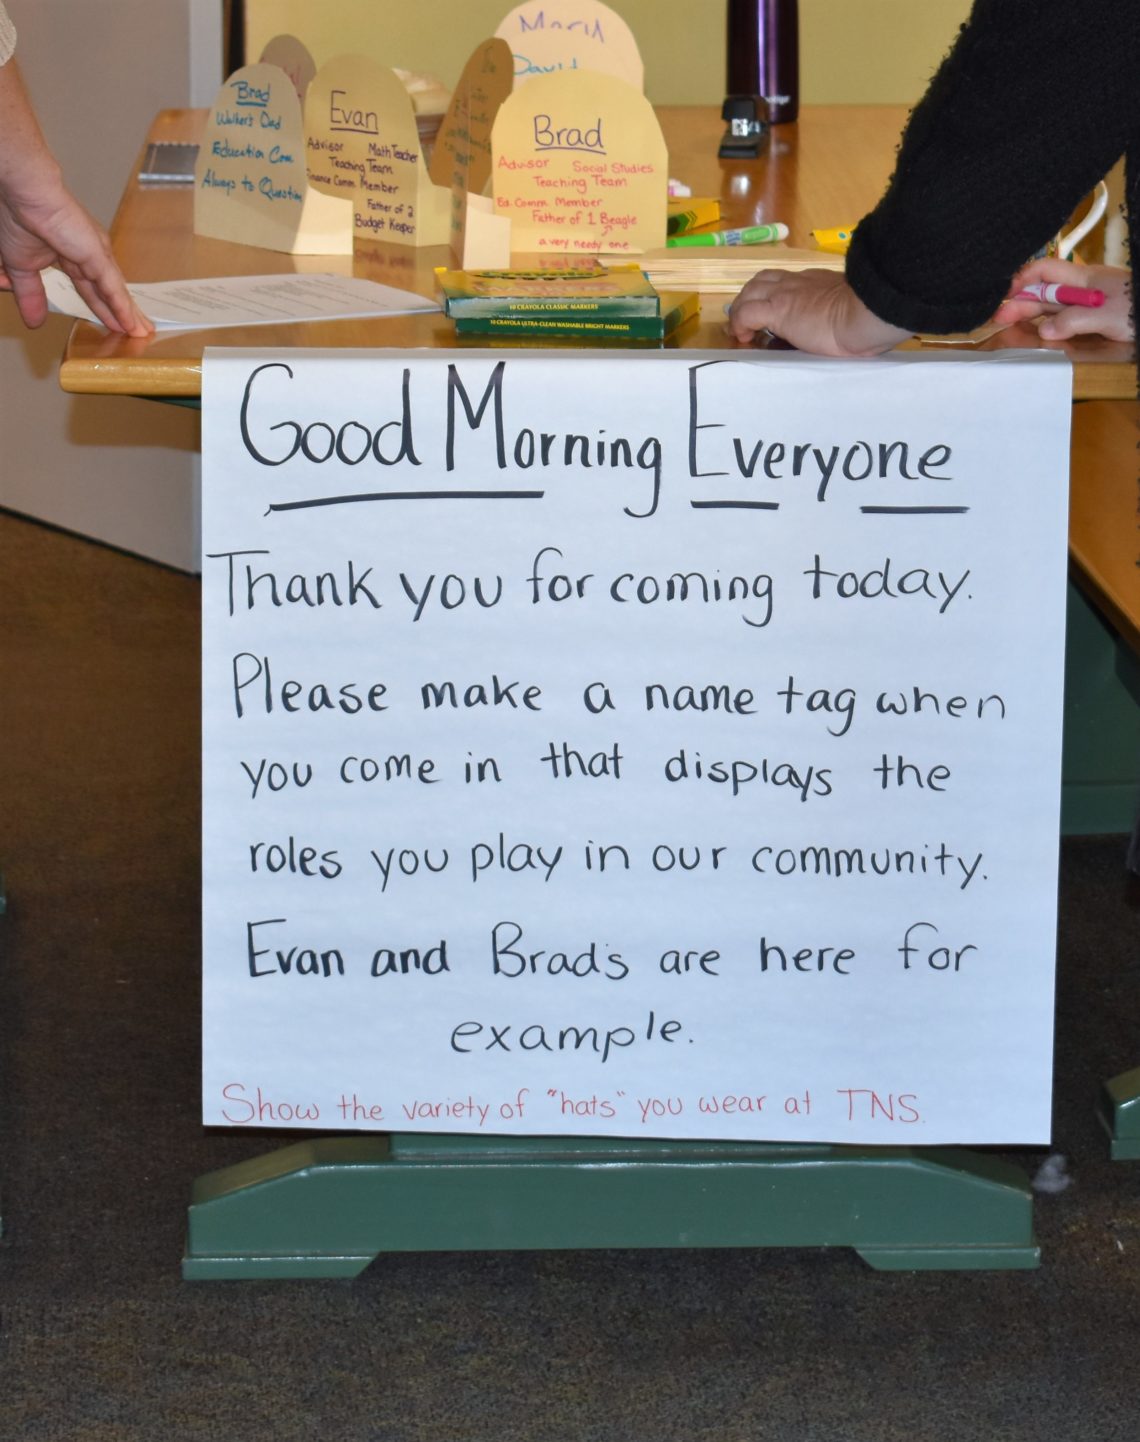 Maria
David
Brad
Walker's Dad
Education Com
Always to Question
Evan
Advisor Math Teacher
Teaching Team
Finance Comm. Member
Father of 2
Budget Keeper
Brad
Advisor Social Studies
Teaching Team
Ed. Comm. Member
Father of 1 Beagle
a very needy one
10 CRAYOLA CLASSIC MARKERS
10 CRAYOLA ULTRA-CLEAN WASHABLE BRIGHT MARKERS
Good Morning Everyone
Thank you for coming today.
Please make a name tag when
you come in that displays the
roles you play in our community.
Evan and Brad's are here for
example.
Show the variety of "hats" you wear at TNS.